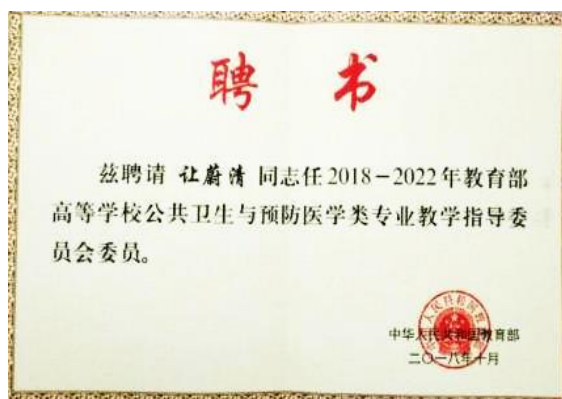 聘 书
兹聘请 让蔚清 同志任2018-2022年教育部
高等学校公共卫生与预防医学类专业教学指导委
员会委员。
中华人民共和国教育部
二〇一八年十月